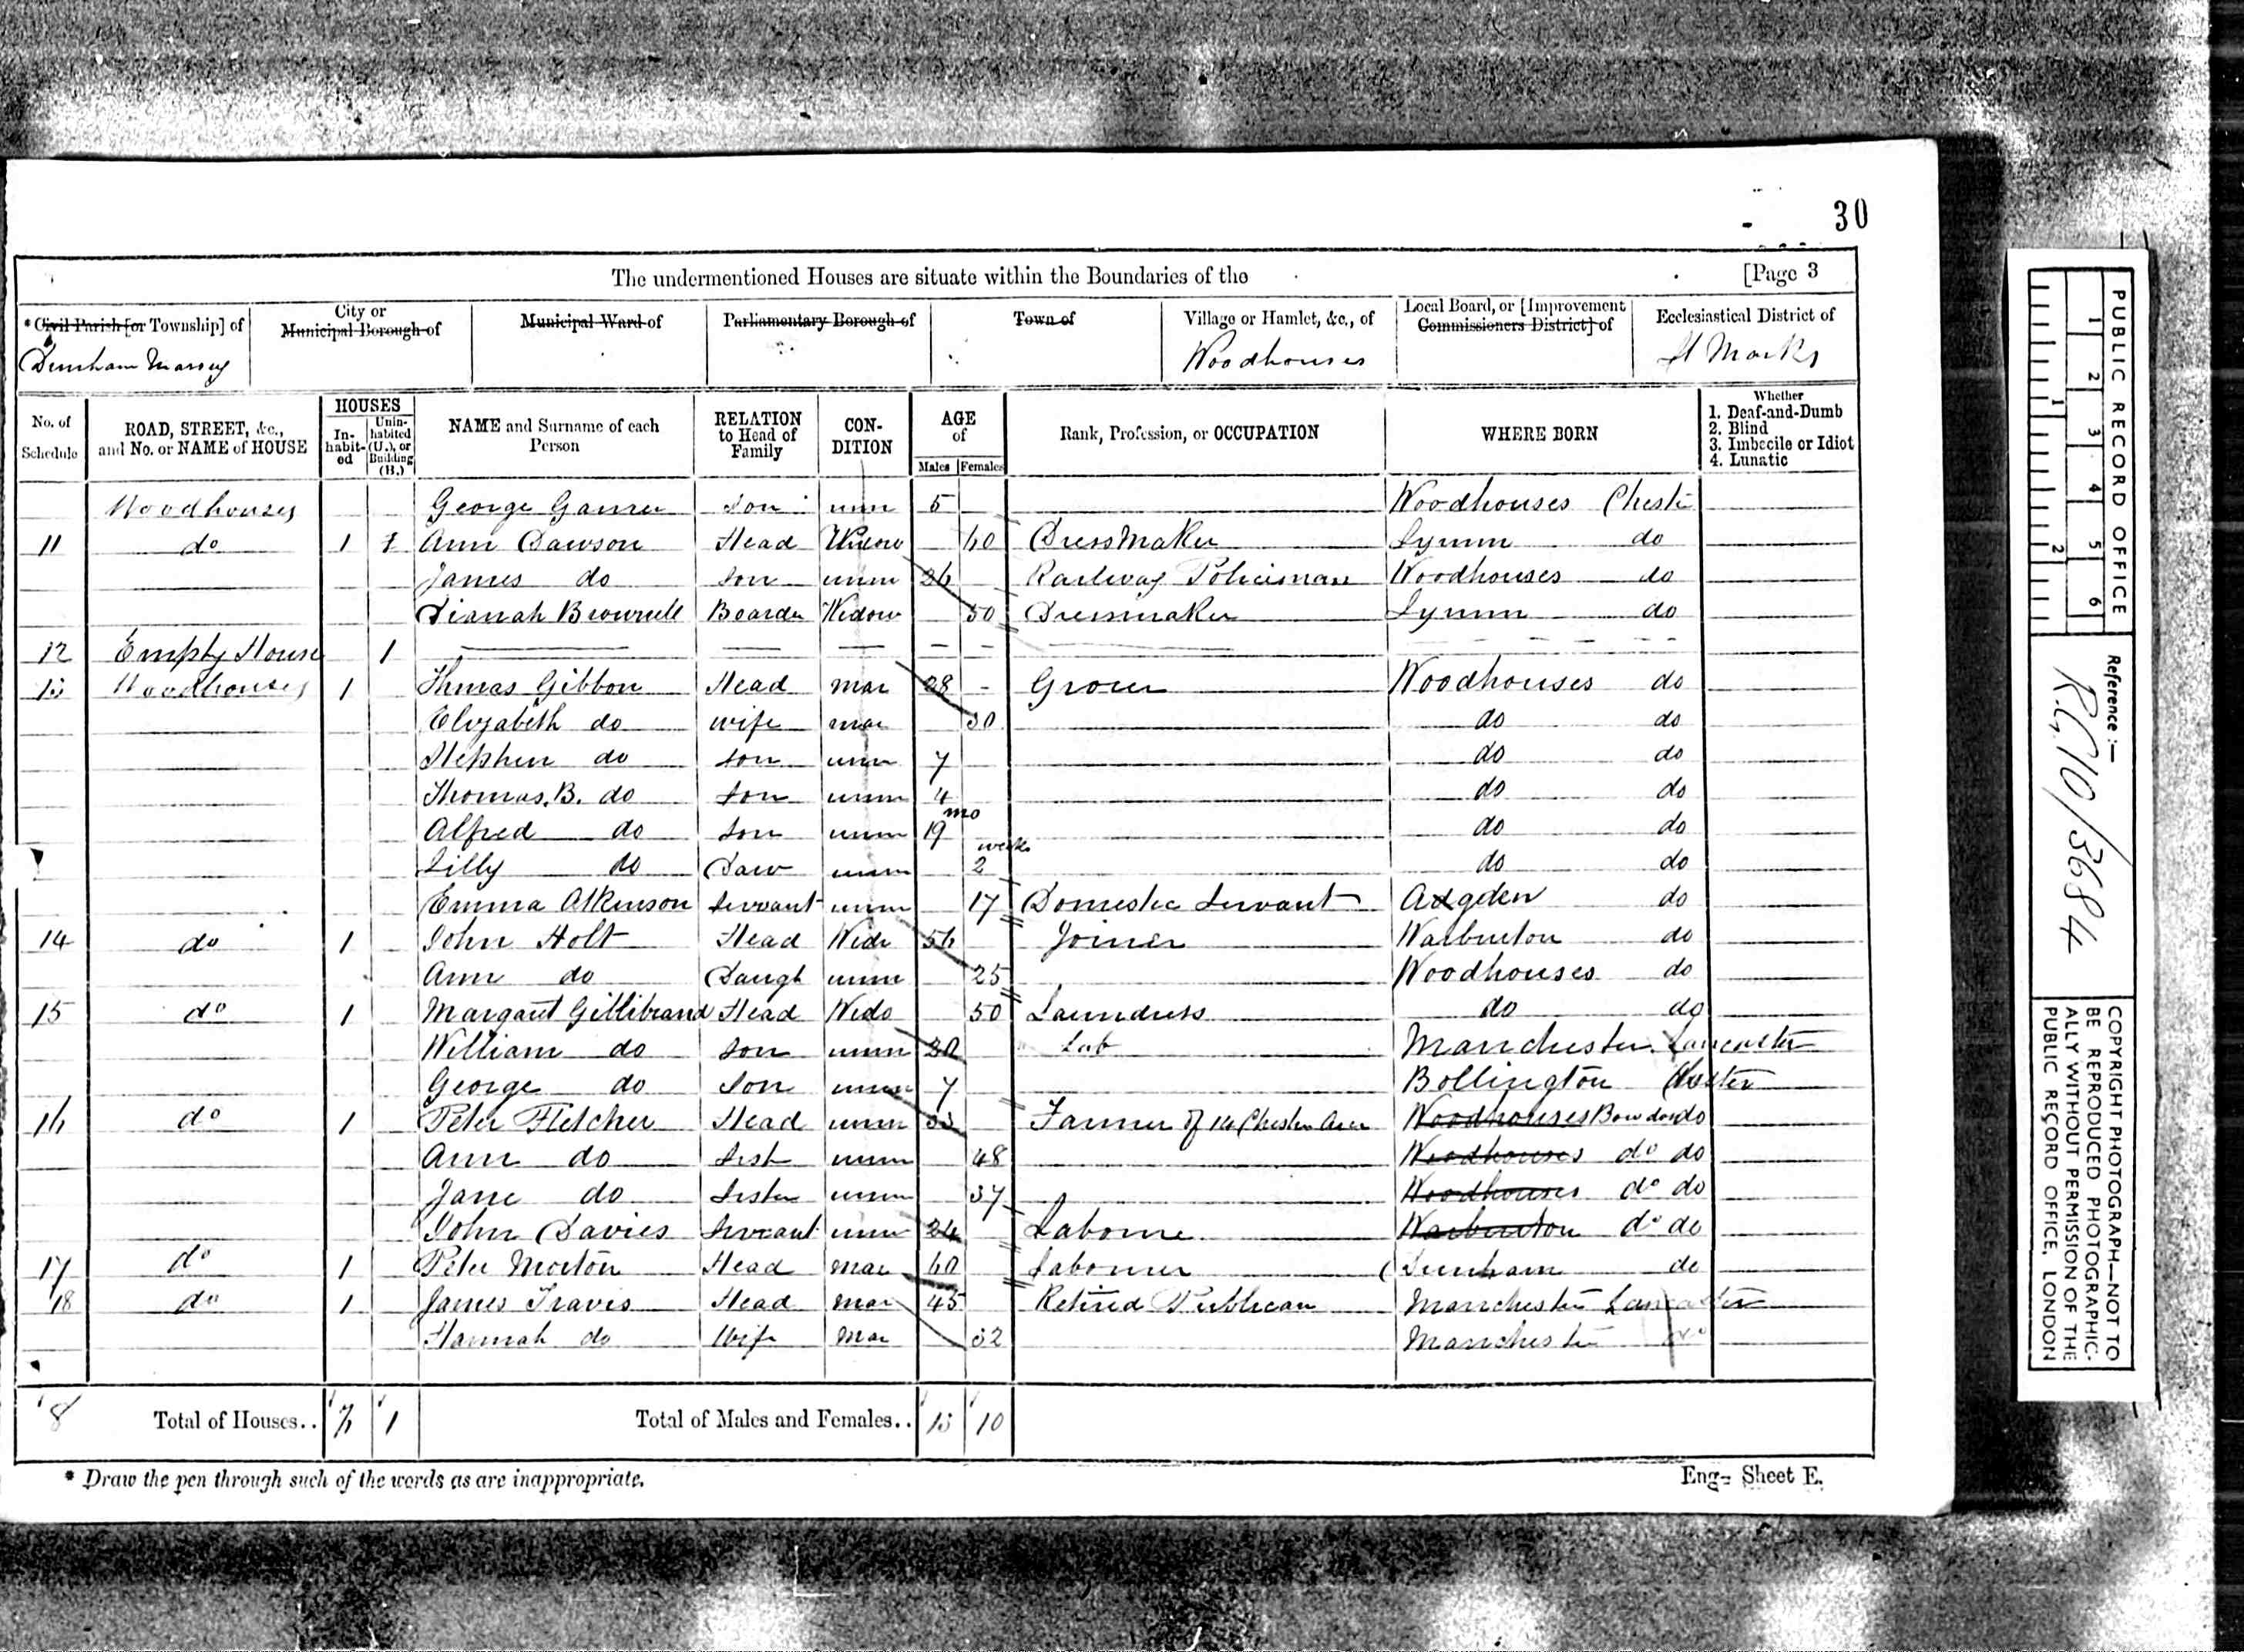 30
The undermentioned Houses are situate within the Boundaries of the [Page 3
* Civil Parish [or Township] of
City or Municipal Borough of
Municipal Ward of
Parliamentary Borough of
Town of
Village or Hamlet, &c., of
Local Board, or [Improvement Commissioners District] of
Ecclesiastical District of
Dunham Massey Woodhouses St Marks
No. of Schedule
ROAD, STREET, &c., and No. or NAME of HOUSE
HOUSES
In-habit-ed
Unin-habited (U.), or Building (B.)
NAME and Surname of each Person
RELATION to Head of Family
CON-DITION
AGE of
Males Females
Rank, Profession, or OCCUPATION
WHERE BORN
Whether
1. Deaf-and-Dumb
2. Blind
3. Imbecile or Idiot
4. Lunatic
Woodhouses George son unm 5 Woodhouses Cheste
11 do 1 Ann Dawson Head Widow 60 Dressmaker Lymm do
James do son unm 26 Railway Policeman Woodhouses do
Boarder Widow 50 Dressmaker Lymm do
12 Empty House 1
13 Woodhouses 1 Thmas Gibbon Head mar 28 Grocer Woodhouses do
Elizabeth do wife mar 30 do do
Stephen do son unm 7 do do
Thomas. B. do son unm 4 do do
Alfred do son unm 19 mo do do
Lilly do Daur unm 2 weeks do do
Emma Atkinson servant unm 17 Domestic Servant Agden do
14 do 1 John Holt Head Widr 56 Joiner Warburton do
Ann do Daugh unm 25 Woodhouses do
15 do 1 Margaret Gillibrand Head Wido 50 Laundress do do
William do son unm 20 Lab Manchester Lancaster
George do son unm 7 Bollington Chester
16 do 1 Peter Fletcher Head unm Farmer of Woodhouses Bowdon do
Ann do Sist unm 48 Woodhouses do do
Jane do Sister unm 37 Woodhouses do do
John Davies Servant unm 24 Labourer Warburton do do
17 do 1 Peter Morton Head mar 60 Labourer Dunham do
18 do 1 James Travis Head mar 45 Retired Publican Manchester Lancaster
Hannah do Wife mar 32 Manchester do
8 Total of Houses.. 7 1 Total of Males and Females.. 13 10
* Draw the pen through such of the words as are inappropriate.
Eng- Sheet E.
PUBLIC RECORD OFFICE
1 2 3 4 5 6
1 2
Reference :-
R.G. 10/3684
COPYRIGHT PHOTOGRAPH—NOT TO
BE REPRODUCED PHOTOGRAPHIC-
ALLY WITHOUT PERMISSION OF THE
PUBLIC RECORD OFFICE, LONDON